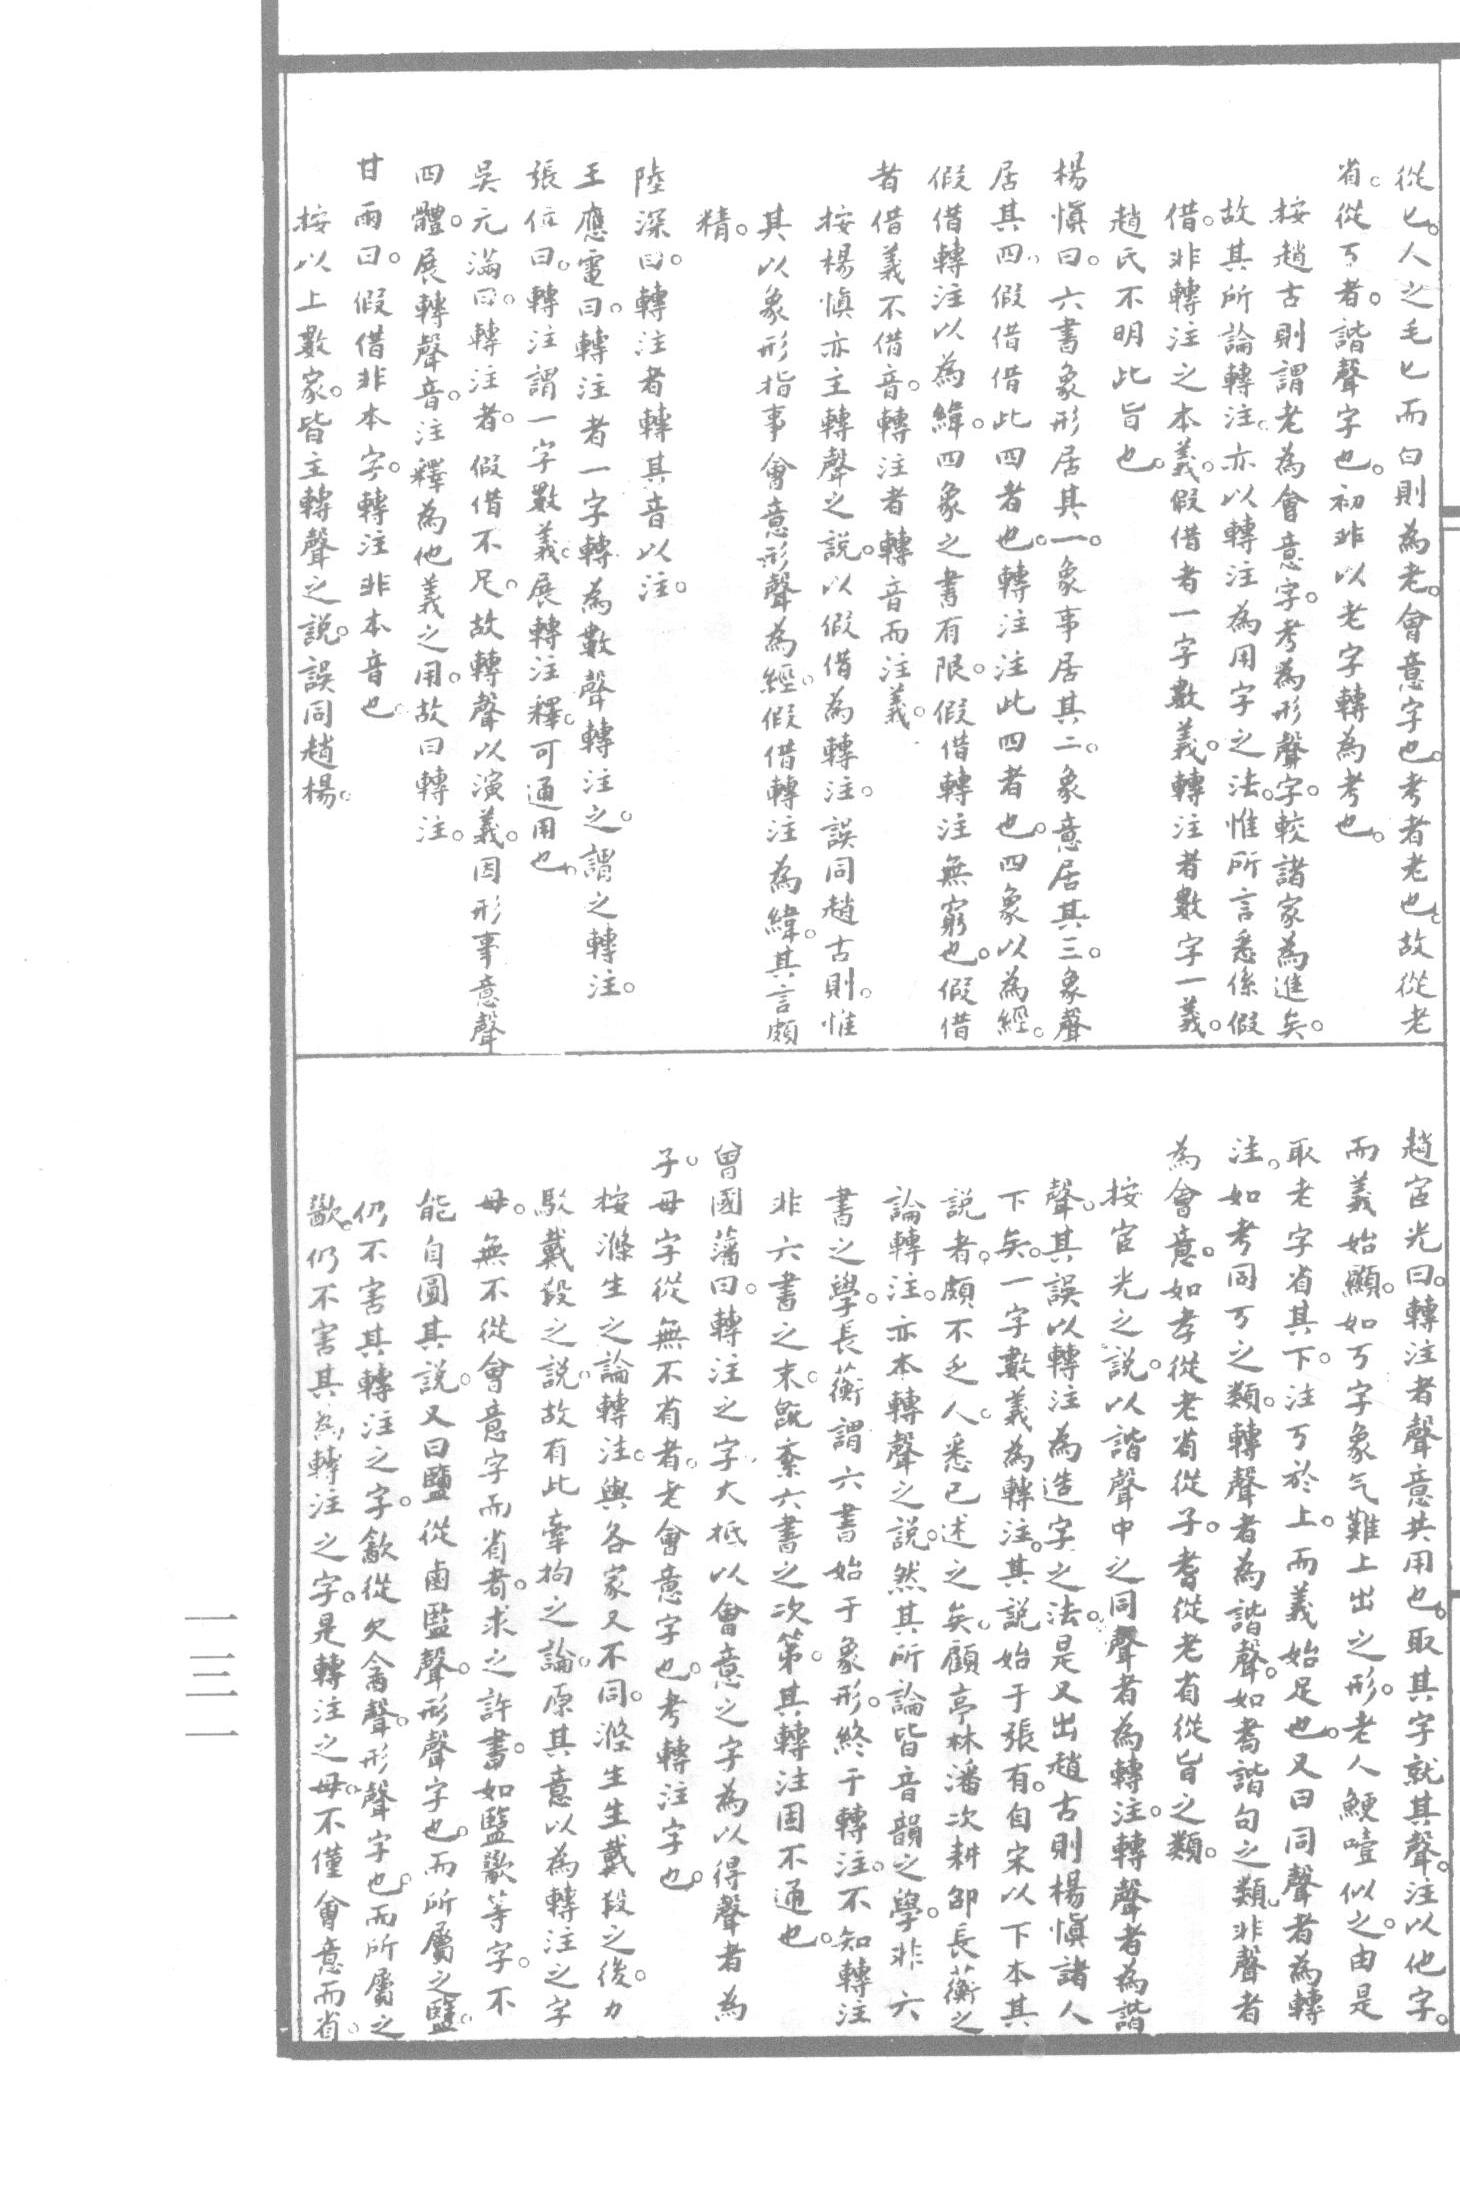 從匕。人之毛匕而白則為老。會意字也。考者老也。故從老
省。從丂者。諧聲字也。初非以老字轉為考也。
按趙古則謂老為會意字。考為形聲字。較諸家為進矣。
故其所論轉注。亦以轉注為用字之法。惟所言悉係假
借。非轉注之本義。假借者一字數義。轉注者數字一義。
趙氏不明此旨也。
楊慎曰。六書象形居其一。象事居其二。象意居其三。象聲
居其四。假借借此四者也。轉注注此四者也。四象以為經。
假借轉注以為緯。四象之書有限。假借轉注無窮也。假借
者借義不借音。轉注者轉音而注義。
按楊慎亦主轉聲之說。以假借為轉注。誤同趙古則。惟
其以象形指事會意形聲為經。假借轉注為緯。其言頗
精。
陸深曰。轉注者轉其音以注。
王應電曰。轉注者一字轉為數聲轉注之。謂之轉注。
張位曰。轉注謂一字數義。展轉注釋。可通用也。
吳元滿曰。轉注者。假借不足。故轉聲以演義。因形事意聲
四體。展轉聲音。注釋為他義之用。故曰轉注。
甘雨曰。假借非本字。轉注非本音也。
按以上數家。皆主轉聲之說。誤同趙楊。
趙宧光曰。轉注者聲意共用也。取其字就其聲。注以他字。
而義始顯。如丂字象气難上出之形。老人鯁噎似之。由是
取老字省其下。注丂於上。而義始足也。又曰同聲者為轉
注。如考同丂之類。轉聲者為諧聲。如耇諧句之類。非聲者
為會意。如孝從老省從子。耆從老省從旨之類。
按宧光之說。以諧聲中之同聲者為轉注。轉聲者為諧
聲。其誤以轉注為造字之法。是又出趙古則楊慎諸人
下矣。一字數義為轉注。其說始于張有。自宋以下本其
說者。頗不乏人。悉已述之矣。顧亭林潘次耕邵長蘅之
論轉注。亦本轉聲之說。然其所論皆音韻之學。非六
書之學。長蘅謂六書始于象形。終于轉注。不知轉注
非六書之末。既紊六書之次第。其轉注固不通也。
曾國藩曰。轉注之字。大抵以會意之字為以得聲者為
子。母字從無不省者。老會意字也。考轉注字也。
按滌生之論轉注。與各家又不同。滌生生戴段之後。力
駁戴段之說。故有此牽拘之論。原其意以為轉注之字
母。無不從會意字而省者。求之許書。如鹽歠等字。不
能自圓其說。又曰鹽從鹵監聲。形聲字也。而所屬之鹽。
仍不害其轉注之字。㱃從欠酓聲。形聲字也。而所屬之
歠。仍不害其為轉注之字。是轉注之母。不僅會意而省。
一三一一